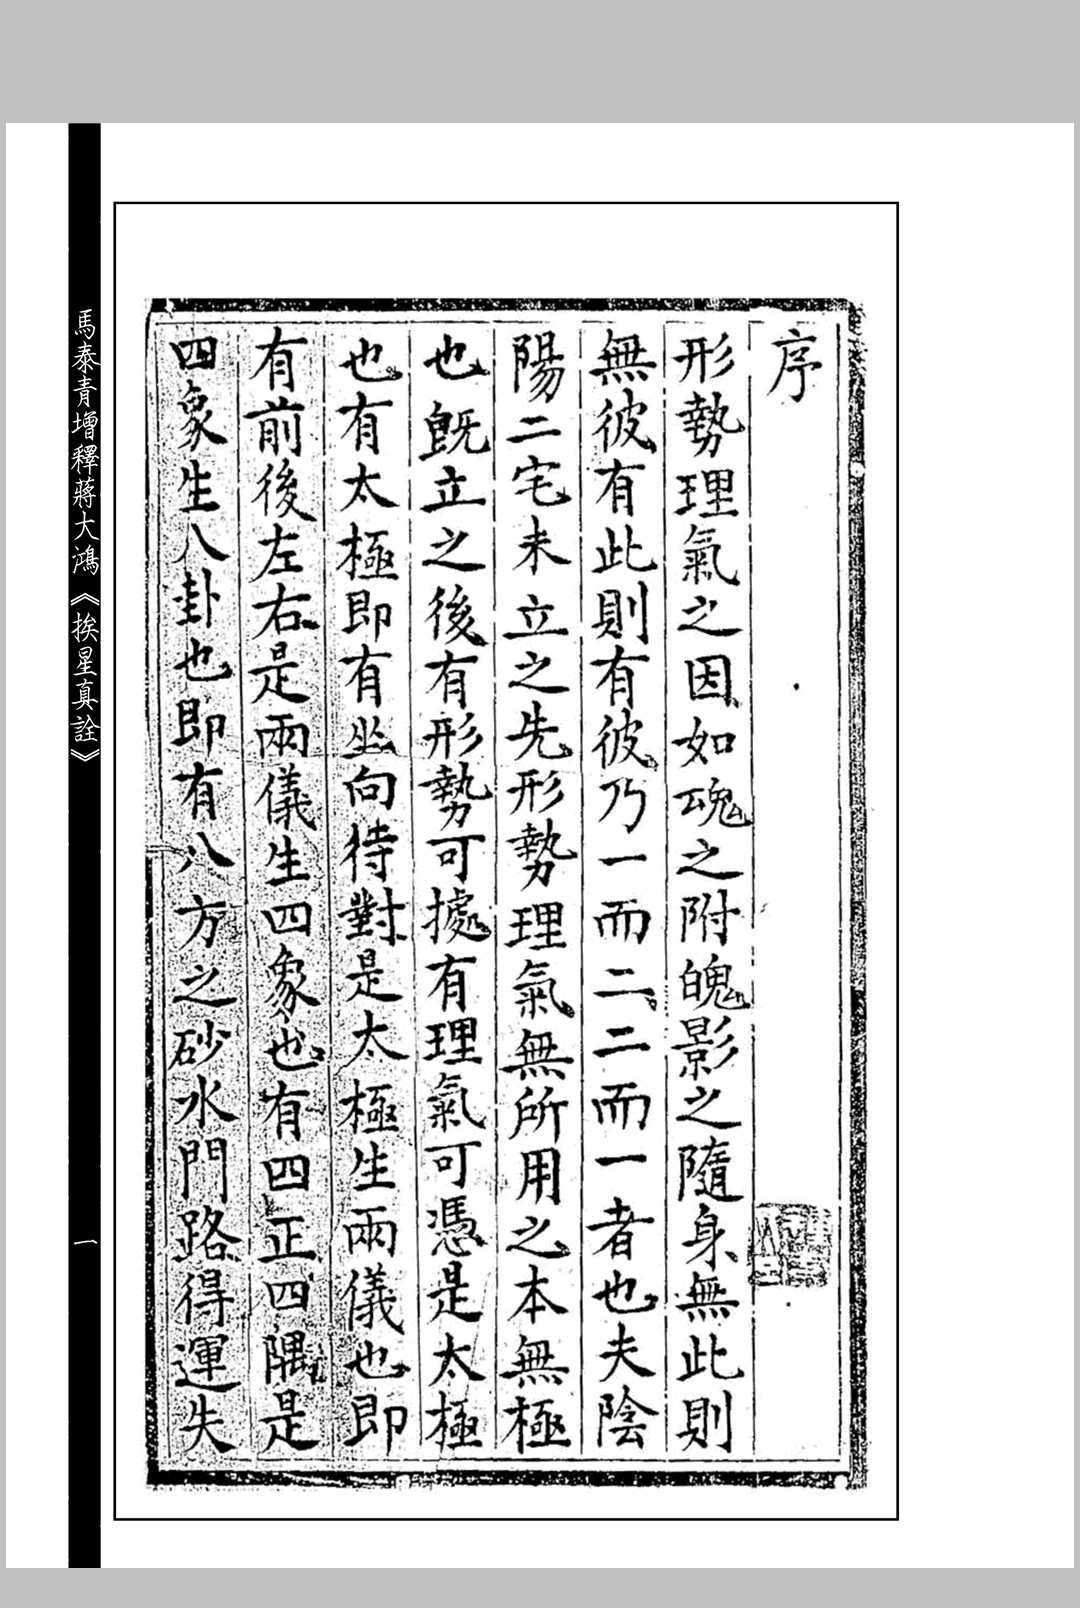 序
形勢理氣之因如魂之附魄影之隨身無此則
無彼有此則有彼乃一而二二而一者也夫陰
陽二宅未立之先形勢理氣無所用之本無極
也既立之後有形勢可據有理氣可憑是太極
也有太極即有坐向待對是太極生兩儀也即
有前後左右是兩儀生四象也有四正四隅是
四象生八卦也即有八方之砂水門路得運失
馬泰青增釋蔣大鴻《挨星真詮》
一